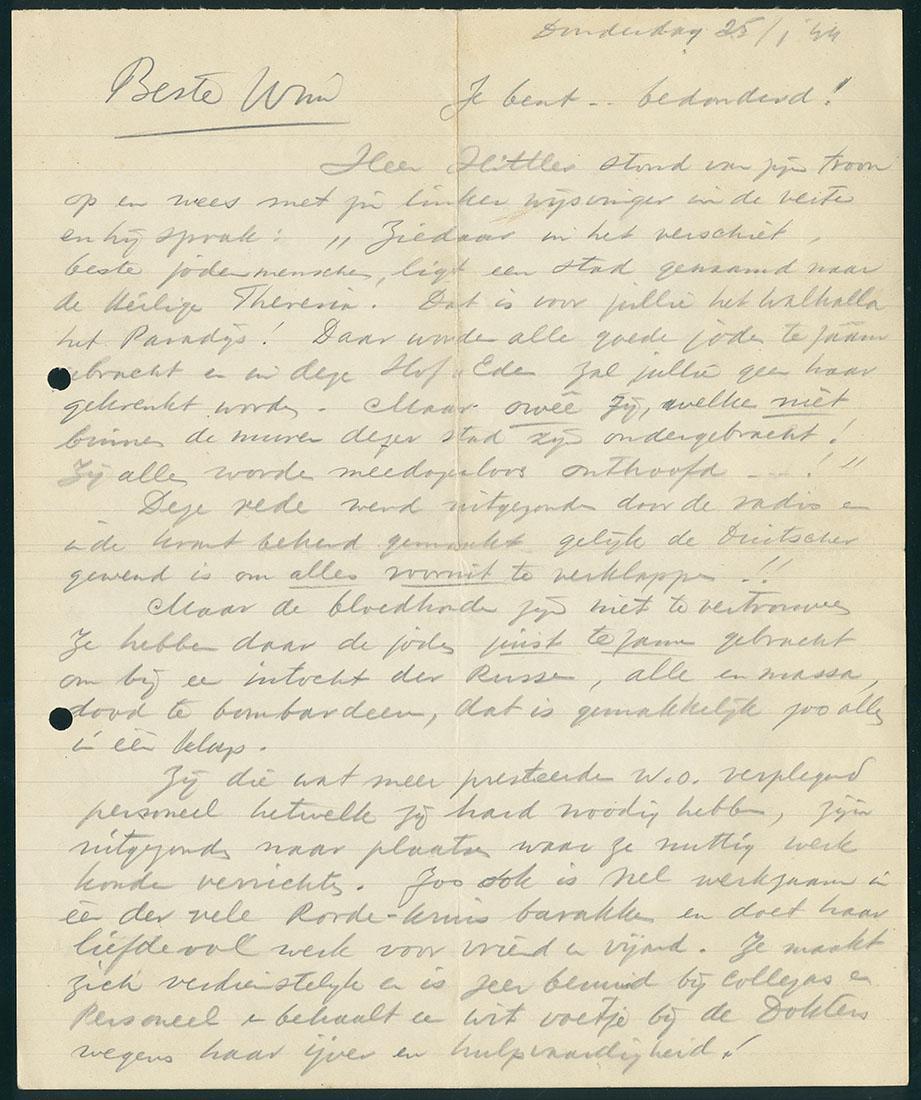 Donderdag 25/1 '44
Beste Wim
Je bent -- bedonderd!
Heer Hittler stond van zijn troon
op en wees met zijn linker wijsvinger in de verte
en hij sprak: „Ziedaar in het verschiet,
beste jodenmenschen, ligt een stad genaamd naar
de Heilige Theresia. Dat is voor jullie het Walhalla
het Paradijs! Daar worden alle goede joden te zaam
gebracht en in deze Hof v. Eden zal jullie geen haar
gekrenkt worden. Maar owêe zij, welke niet
binnen de muren dezer stad zijn ondergebracht!
Zij allen worden meedogenloos onthoofd ---!"
Deze rede werd uitgezonden door de radio en
in de krant bekend gemaakt gelijk de Duitscher
gewend is om alles vooruit te verklappen!!
Maar de bloedhonden zijn niet te vertrouwen
Ze hebben daar de joden juist te zamen gebracht
om bij een intocht der Russen, alle en massa,
dood te bombardeeren, dat is gemakkelijk zoo alles
in één klap.
Zij die wat meer presteerden w.o. verplegend
personeel hetwelk zij hard noodig hebben, zijn
uitgezonden naar plaatsen waar ze nuttig werk
konden verrichten. Zoo ook is Nel werkzaam in
één der vele Roode-Kruis barakken en doet haar
liefdevol werk voor vriend en vijand. Ze maakt
zich verdienstelijk en is zeer bemind bij collegas en
Personeel en behaalt een wit voetje bij de Dokters
wegens haar ijver en hulpvaardigheid!